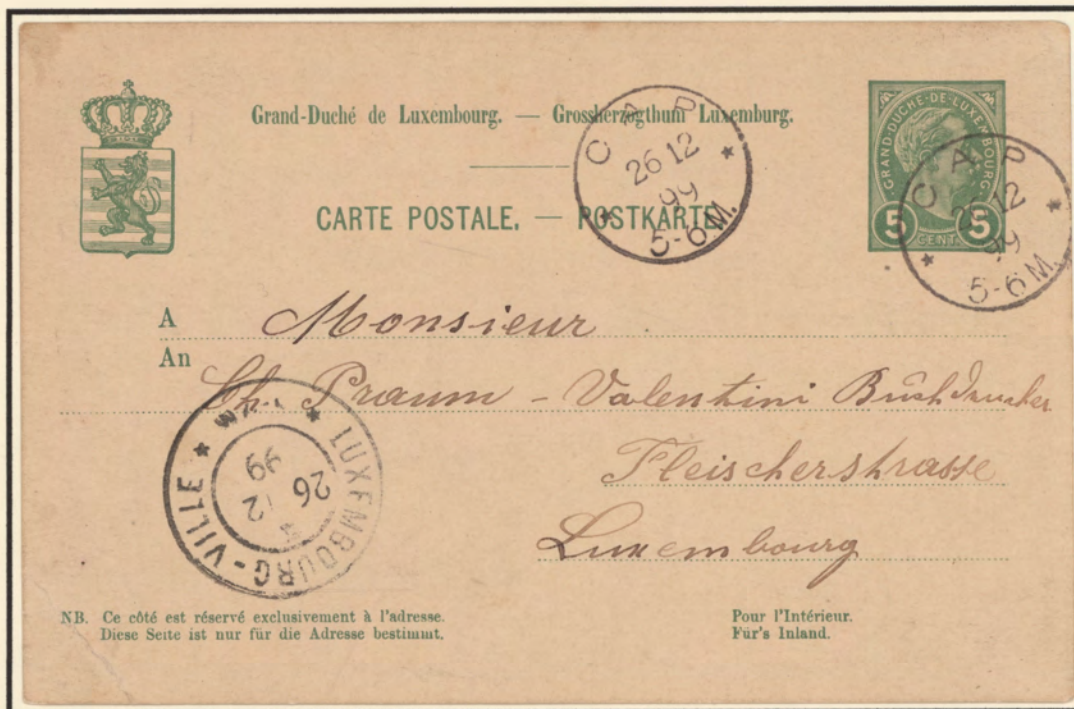 Grand-Duché de Luxembourg. — Grossherzogthum Luxemburg.
CARTE POSTALE. — POSTKARTE.
GRAND-DUCHÉ-DE-LUXEMBOURG.
5 CENT. 5
CAP
26 12
99
5-6 M.
CAP
26 12
99
5-6 M.
A Monsieur
An Ch. Praum - Valentini Buchdrucker
Fleischerstrasse
Luxembourg
LUXEMBOURG-VILLE
26 12
99
NB. Ce côté est réservé exclusivement à l'adresse.
Diese Seite ist nur für die Adresse bestimmt.
Pour l'Intérieur.
Für's Inland.